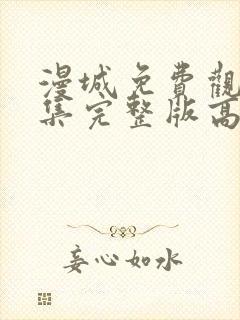 漫城免費觀
集完整版高
妄心如水